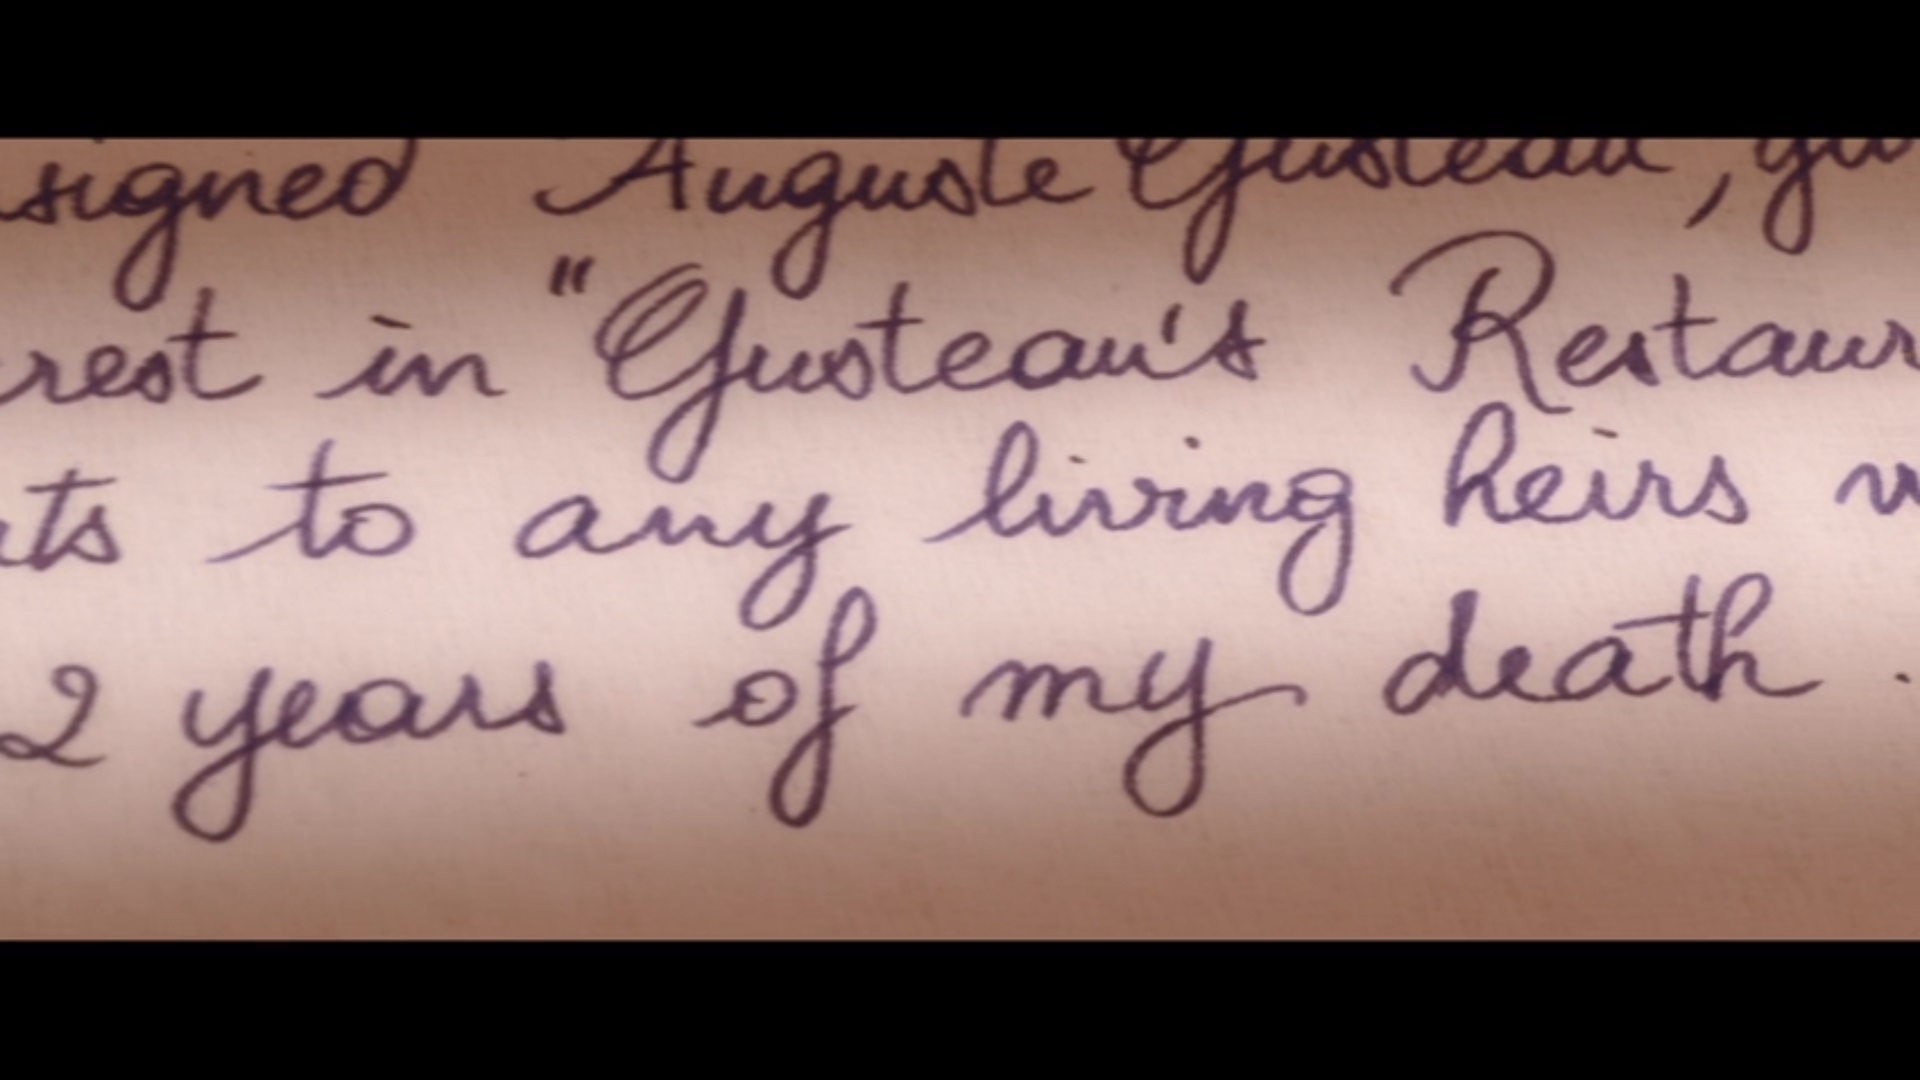 signed Auguste Gusteau,
rest in "Gusteau's Restaur
ts to any living heirs
2 years of my death.